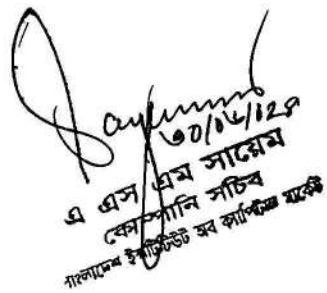 Sayem
৩০/০৬/২৪
এ এস এম সায়েম
কোম্পানি সচিব
বাংলাদেশ ইন্সটিটিউট অব ক্যাপিটাল মার্কেট